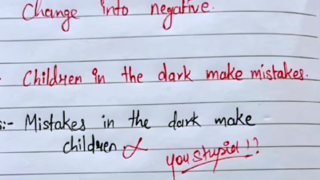 Change into negative.
Children in the dark make mistakes.
:- Mistakes in the dark make
children
you stupid!?